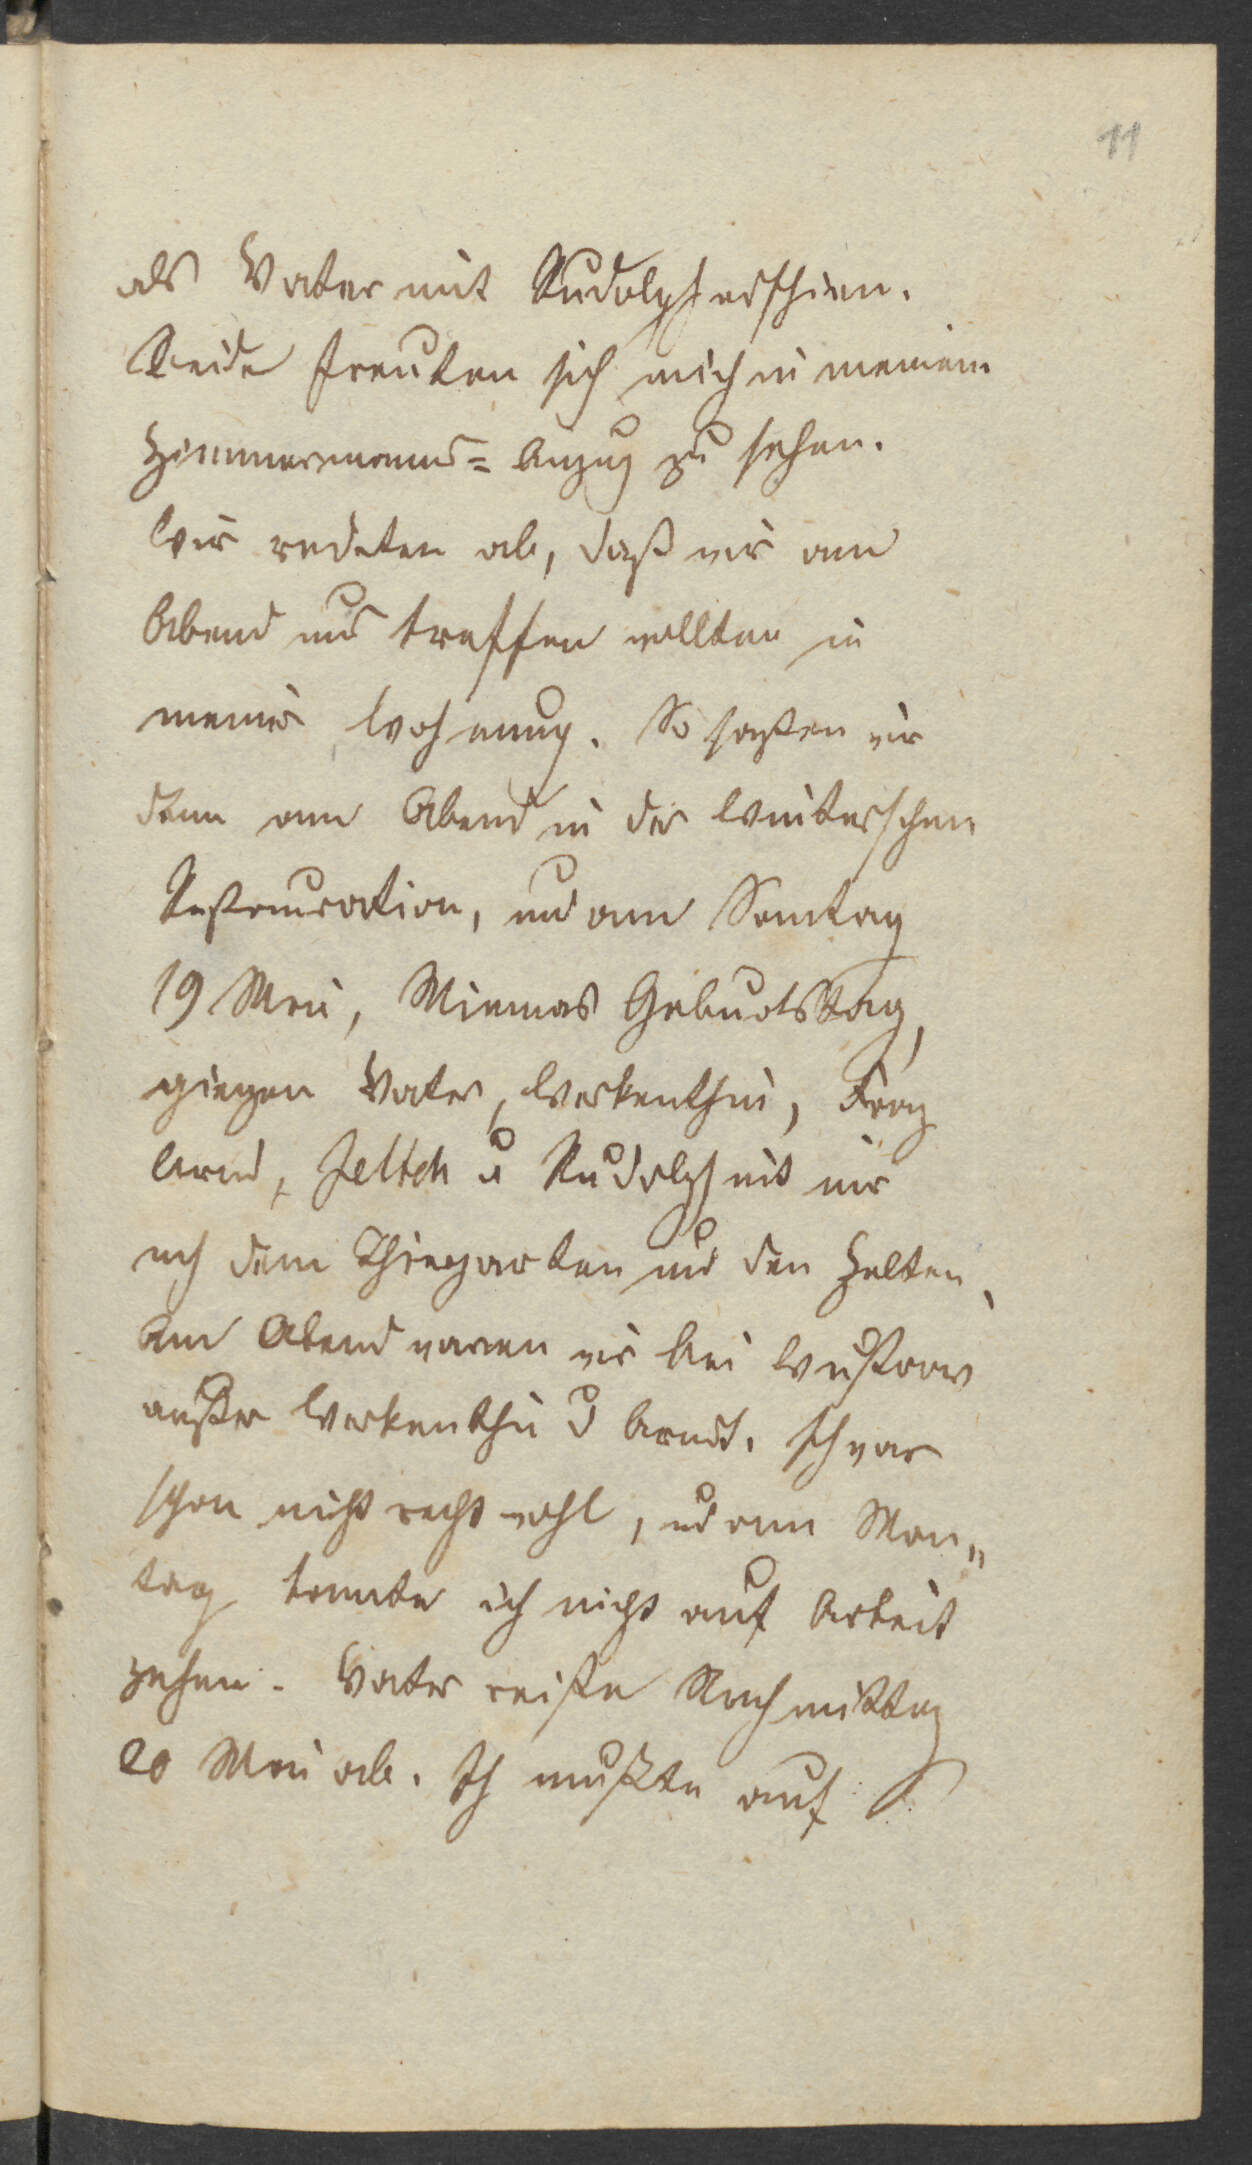 11
als Vater mit Rudolph erschien.
Beide freuten sich mich in meinem
Zimmermanns= Anzug zu sehen.
Wir redeten ab, daß wir am
Abend uns treffen wollten in
meiner Wohnung. So saßen wir
denn am Abend in der Winterschen
Restauration, und am Sonntag
19 Mai, Miemas Geburtstag,
giegen Vater, Werkenthin,
Arnd, Jeltch u Rudolph mit mir
nach dem Thiergarten und den Zelten,
Am Abend waren wir bei Wustrow
außer Werkenthin u Arndt. Ich war
schon nicht recht wohl, und am Mon„
tag konnte ich nicht auf Arbeit
gehen. Vater reiste Nachmittag
20 Mai ab. Ich mußte auf